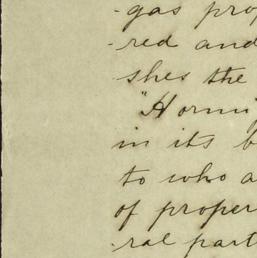 -gas prop
-red and
-shes the
"Horni
in its b
to who a
of proper
-ral part